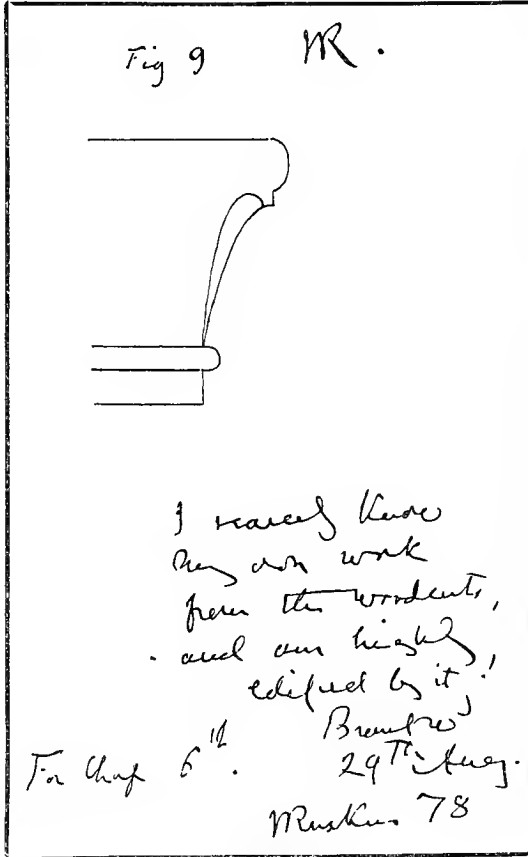 Fig 9 JR.
I scarcely know
my own work
from the woodcuts,
and am highly
edified by it!
Brantwood
29th Aug.
For Chap 6th.
JRuskin. 78